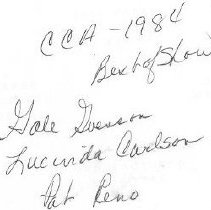 CCA - 1984
Best of Show
Gale
Lucinda Carlson
Pat Reno